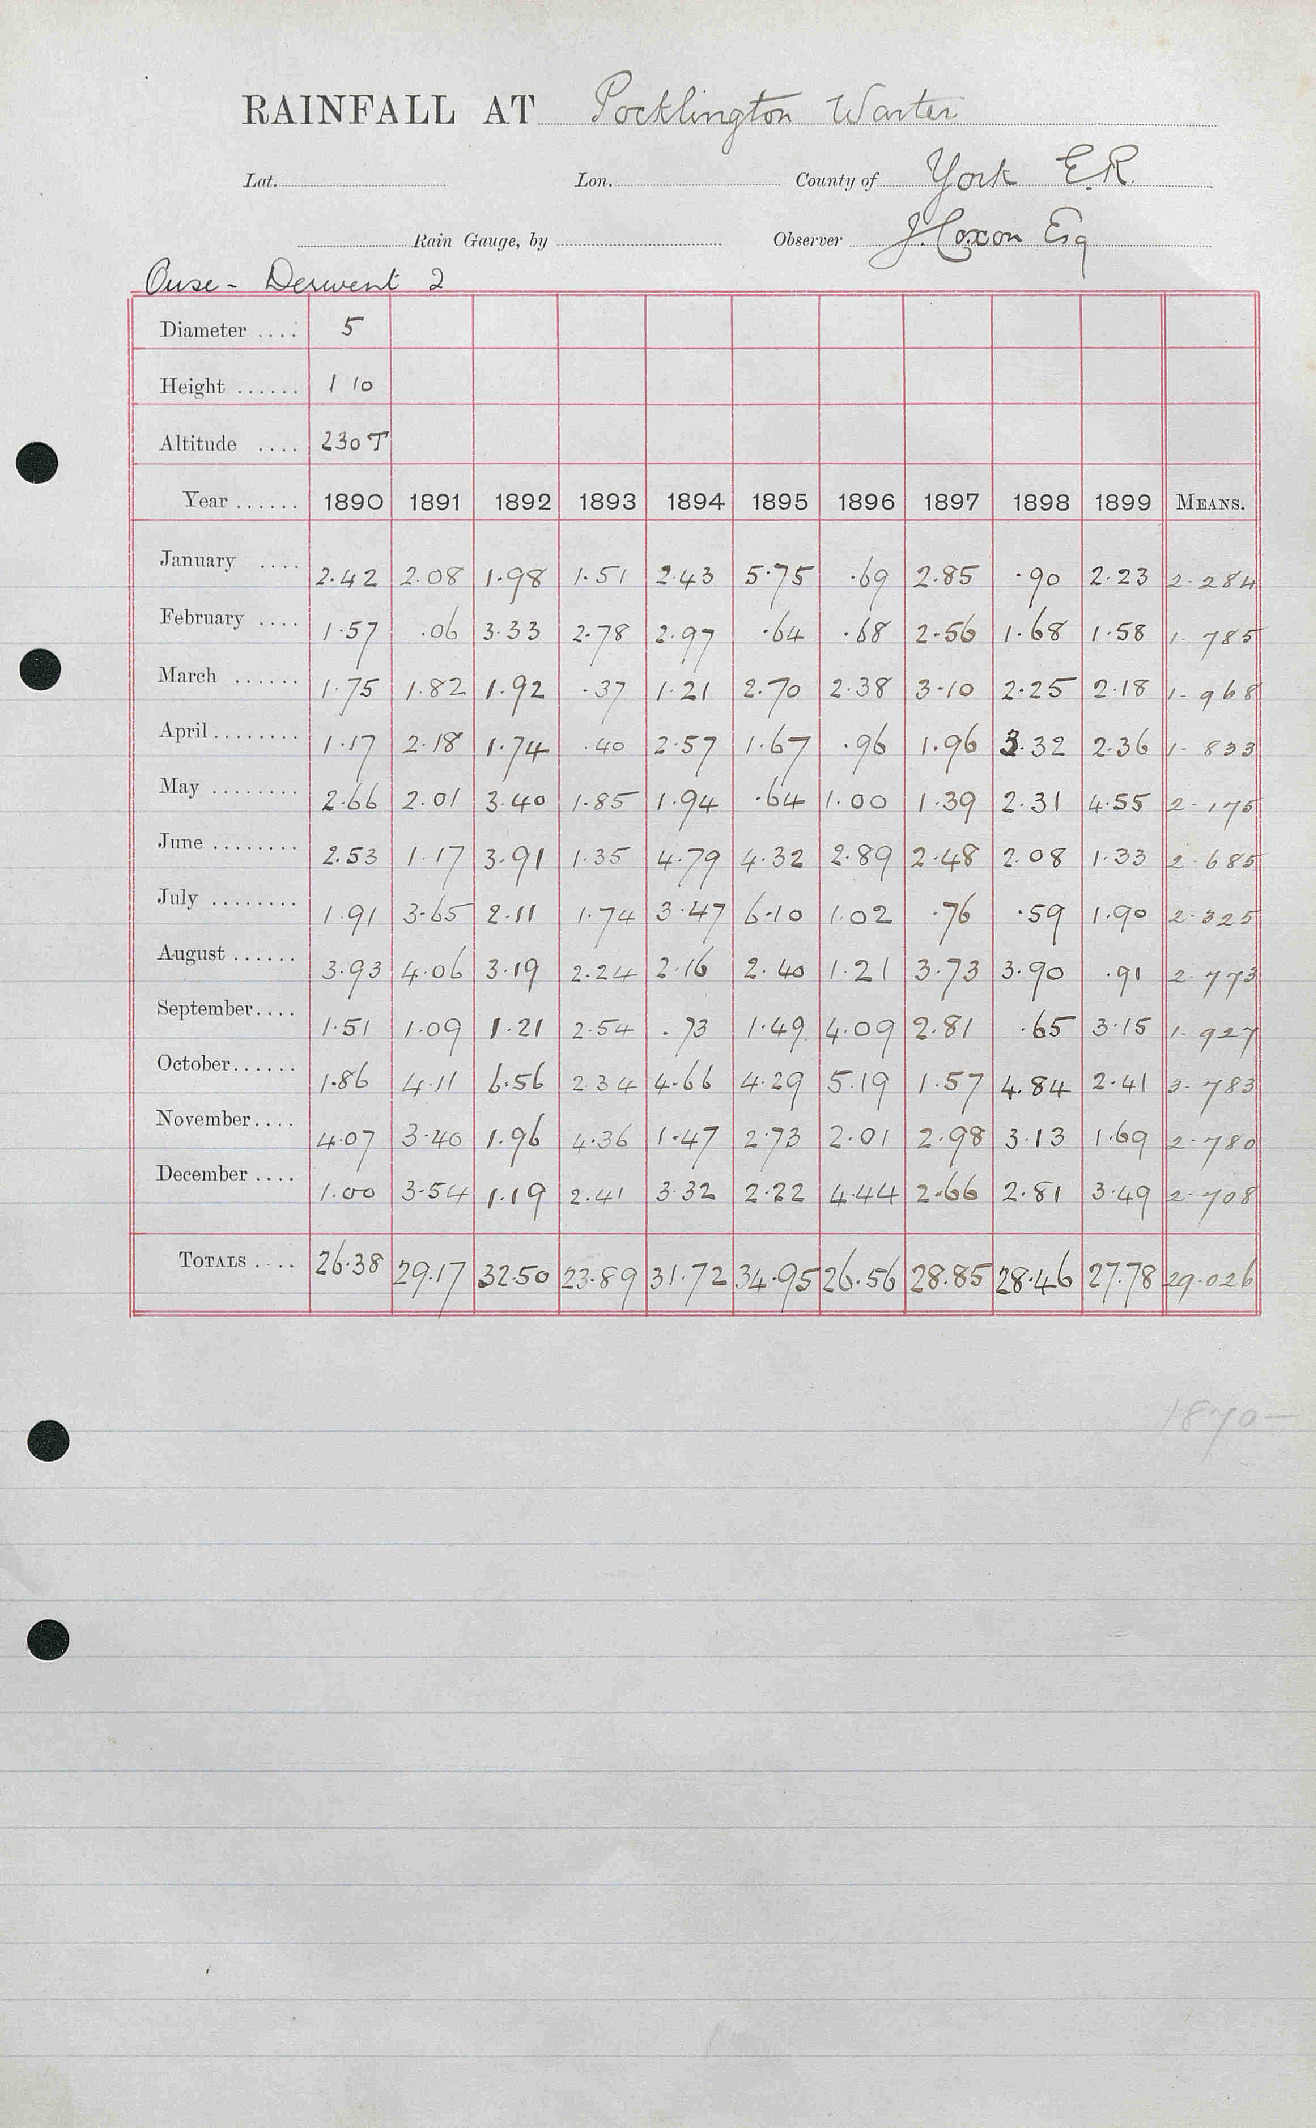 RAINFALL AT Pocklington Warter
Lat. Lon. County of York E.R.
Rain Gauge, by Observer J. Coxon Esq
Ouse - Derwent 2
Diameter .... 5
Height ...... 1 10
Altitude .... 230 T
Year ...... 1890 1891 1892 1893 1894 1895 1896 1897 1898 1899 MEANS.
January .... 2.42 2.08 1.98 1.51 2.43 5.75 .69 2.85 .90 2.23 2.284
February .... 1.57 .06 3.33 2.78 2.97 .64 .68 2.56 1.68 1.58 1.785
March ...... 1.75 1.82 1.92 .37 1.21 2.70 2.38 3.10 2.25 2.18 1.968
April ........ 1.17 2.18 1.74 .40 2.57 1.67 .96 1.96 3.32 2.36 1.833
May ........ 2.66 2.01 3.40 1.85 1.94 .64 1.00 1.39 2.31 4.55 2.175
June ........ 2.53 1.17 3.91 1.35 4.79 4.32 2.89 2.48 2.08 1.33 2.685
July ........ 1.91 3.65 2.11 1.74 3.47 6.10 1.02 .76 .59 1.90 2.325
August ...... 3.93 4.06 3.19 2.24 2.16 2.40 1.21 3.73 3.90 .91 2.773
September .... 1.51 1.09 1.21 2.54 .73 1.49 4.09 2.81 .65 3.15 1.927
October ...... 1.86 4.11 6.56 2.34 4.66 4.29 5.19 1.57 4.84 2.41 3.783
November .... 4.07 3.40 1.96 4.36 1.47 2.73 2.01 2.98 3.13 1.69 2.780
December .... 1.00 3.54 1.19 2.41 3.32 2.22 4.44 2.66 2.81 3.49 2.708
TOTALS .... 26.38 29.17 32.50 23.89 31.72 34.95 26.56 28.85 28.46 27.78 29.026
1870-